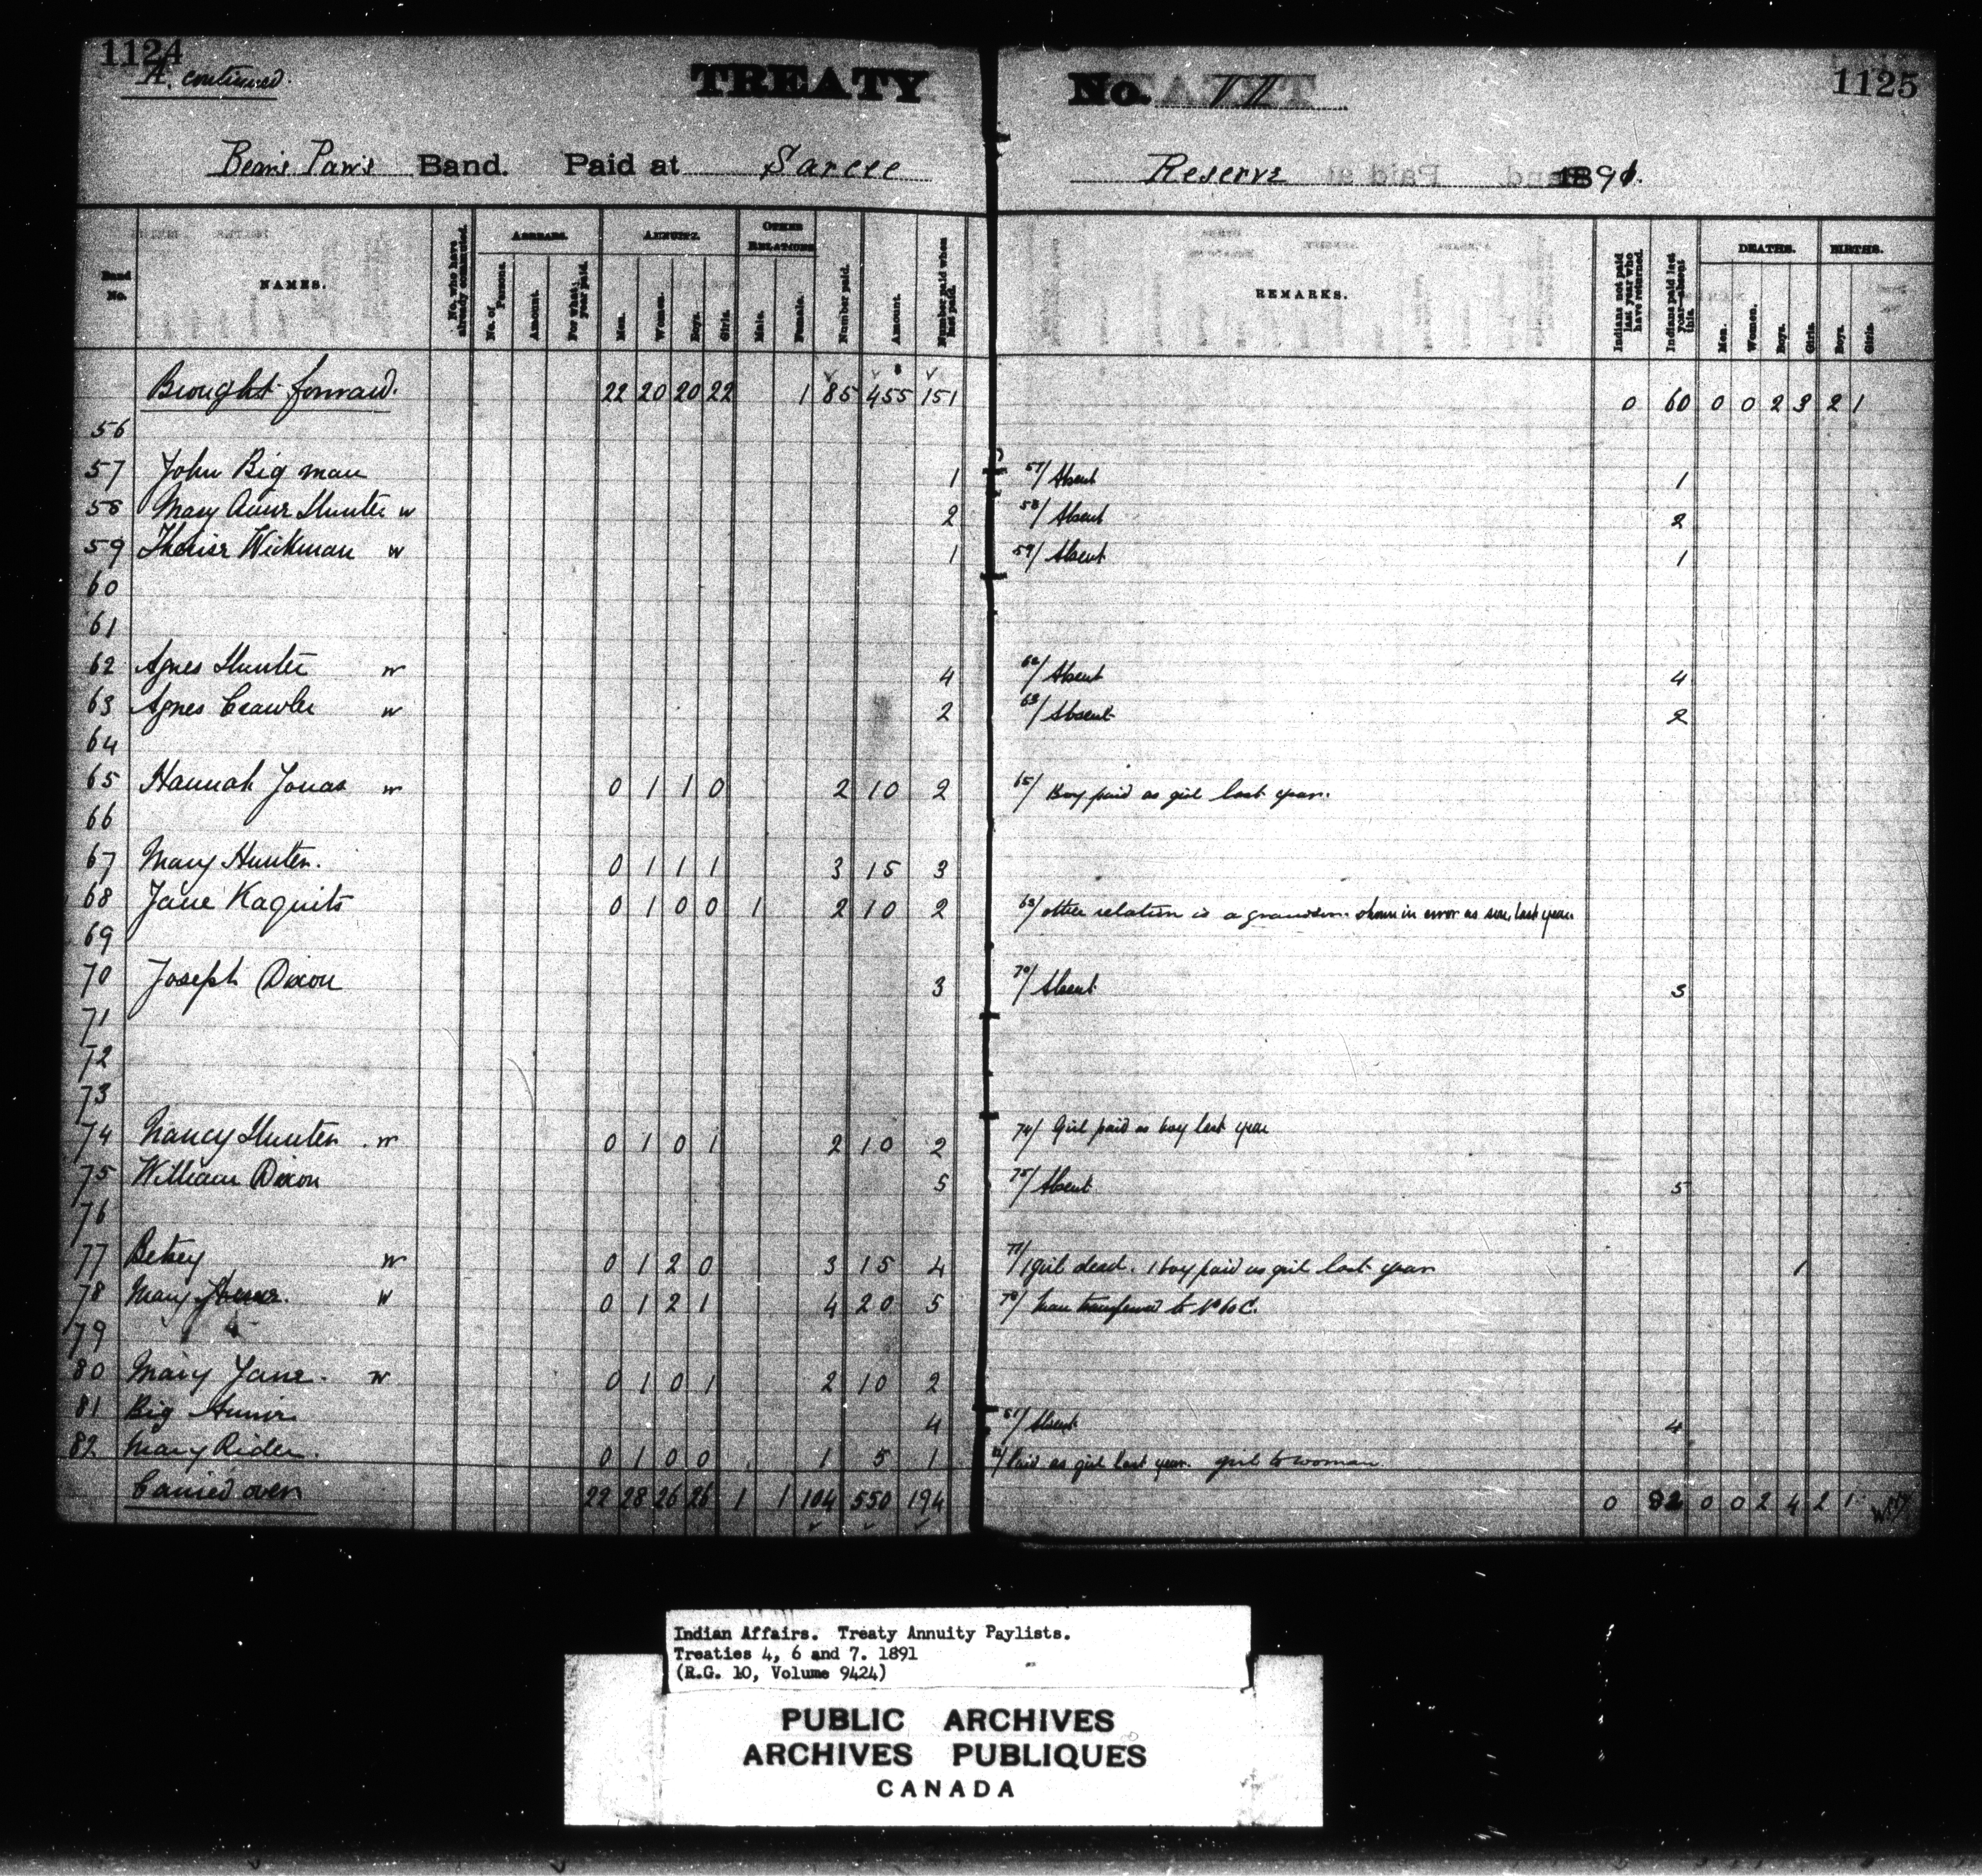 1124
A. continued
TREATY No. VII
1125
Bear's Paw's Band. Paid at Sarcee Reserve 1891.
Band No. NAMES. No. who have already commuted. ARREARS. No. of Persons. Amount. For what year paid. ANNUITY. Men. Women. Boys. Girls. OTHER RELATIONS Male. Female. Number paid. Amount. Number paid when last paid. REMARKS. Indians not paid last year who have returned. Indians paid last year—absent this. DEATHS. Men. Women. Boys. Girls. BIRTHS. Boys. Girls.
Brought forward. 22 20 20 22 1 85 455 151 0 60 0 0 2 3 2 1
56
57 John Big man 1 57/ Absent 1
58 Mary Hunter w 2 58/ Absent 2
59 Wickman w 1 59/ Absent 1
60
61
62 Agnes Hunter w 4 62/ Absent 4
63 Agnes Crawler w 2 63/ Absent 2
64
65 Hannah Jonas w 0 1 1 0 2 10 2 65/ Boy paid as girl last year.
66
67 Mary Hunter. 0 1 1 1 3 15 3
68 Jane Kaquits 0 1 0 0 1 2 10 2 68/ other relation is a grandson shown in error as son, last year.
69
70 Joseph Dixon 3 70/ Absent 3
71
72
73
74 Nancy Hunter. w 0 1 0 1 2 10 2 74/ Girl paid as boy last year
75 William Dixon 5 75/ Absent 5
76
77 Betsey w 0 1 2 0 3 15 4 77/ 1 girl dead. 1 boy paid as girl last year 1
78 Mary w 0 1 2 1 4 20 5 78/ transferred to No 60 C.
79
80 Mary Jane. w 0 1 0 1 2 10 2
81 Big 4 81/ Absent 4
82 Mary Rider. 0 1 0 0 1 5 1 82/ Paid as girl last year. girl to woman
Carried over 22 28 26 26 1 1 104 550 194 0 82 0 0 2 4 2 1
Indian Affairs. Treaty Annuity Paylists.
Treaties 4, 6 and 7. 1891
(R.G. 10, Volume 9424)
PUBLIC ARCHIVES
ARCHIVES PUBLIQUES
CANADA